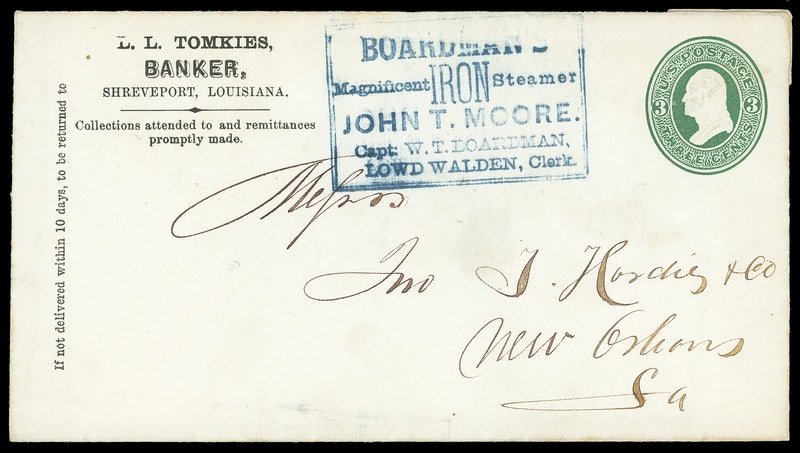 L. L. TOMKIES,
BANKER,
SHREVEPORT, LOUISIANA.
Collections attended to and remittances
promptly made.
If not delivered within 10 days, to be returned to
BOARDMAN'S
Magnificent IRON Steamer
JOHN T. MOORE.
Capt: W. T. BOARDMAN,
LOWD WALDEN, Clerk.
U.S. POSTAGE
3 3
THREE CENTS
Messrs
Jno T. Hardie & Co
New Orleans
La